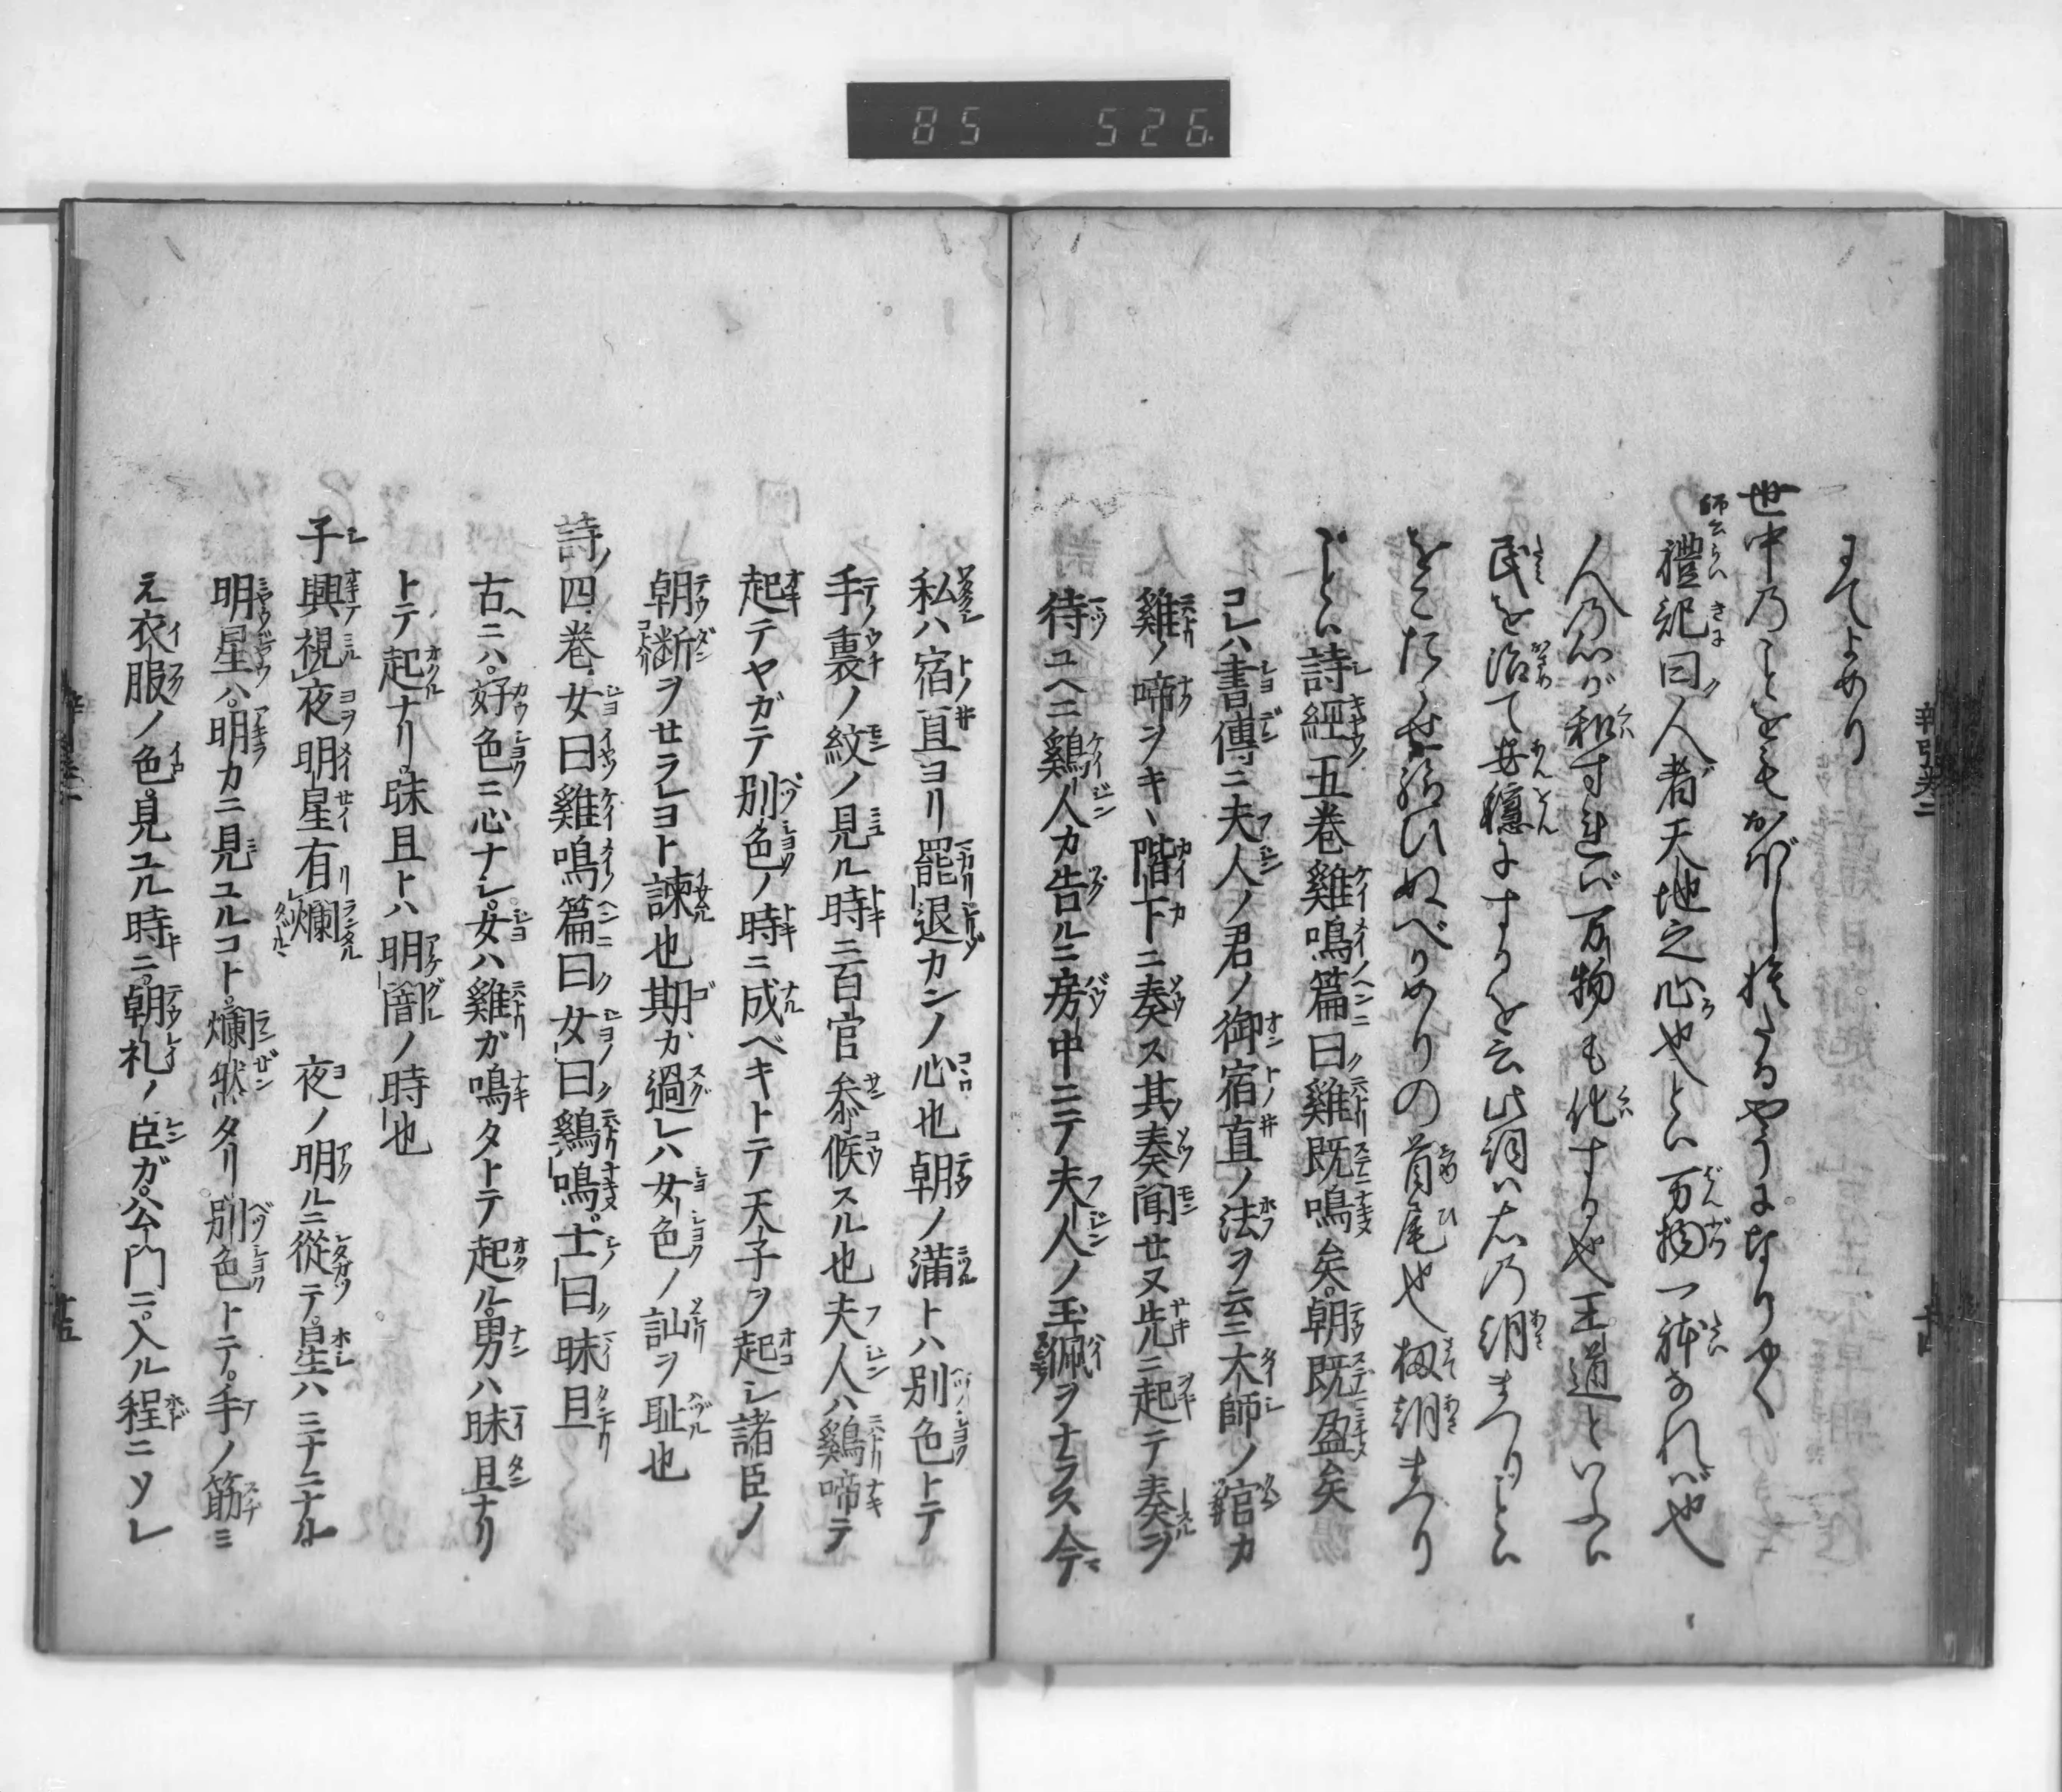 85 526
にてよめり
世中のことをもおぼし捨たるやうになりゆく
師云
禮記曰人者天地之心也とい万物一体なれば也
人の心が和すれば万物も化する也王道といふハ
民を治て安穏にするを云此詞ハ右の朝まつりごとハ
をこたらせ給ひぬべかめりの首尾也扨朝まつり
ごとハ詩經五巻雞鳴篇曰雞既鳴矣朝既盈矣
コレハ書傳ニ夫人ノ君ノ御宿直ノ法ヲ云ニ太師ノ官カ
雞ノ啼ヲキヽ階下ニ奏ス其奏聞せ又先ニ起テ奏ヲ
待ユヘニ鷄人カ告ルニ房中ニテ夫人ノ玉佩ヲナラス今
私ハ宿直ヨリ罷退カンノ心也朝ノ滿トハ別色トテ
手ノ裏ノ紋ノ見ル時ニ百官参候スル也夫人ハ鷄啼テ
起テヤガテ別色ノ時ニ成ベキトテ天子ヲ起シ諸臣ノ
朝断ヲせラレヨト諫也期か過レハ女色ノ訕ヲ耻也
詩ノ四巻女曰雞鳴篇曰女曰鷄鳴士曰昧旦
古ニハ好色ニ心ナシ女ハ雞ガ鳴タトテ起ル男ハ昧旦ナリ
トテ起ナリ昧旦トハ明闇ノ時也
子興視夜明星有爛　夜ノ明ルニ從テ星ハミナニナル
明星ハ明カニ見ユルコト爛然タリ別色トテ手ノ筋ミ
え衣服ノ色見ユル時ニ朝礼ノ臣ガ公門ニ入ル程ニソレ